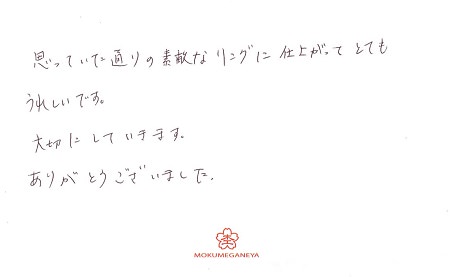 思っていた通りの素敵なリングに仕上がってとても
うれしいです。
大切にしていきます。
ありがとうございました.
MOKUMEGANEYA